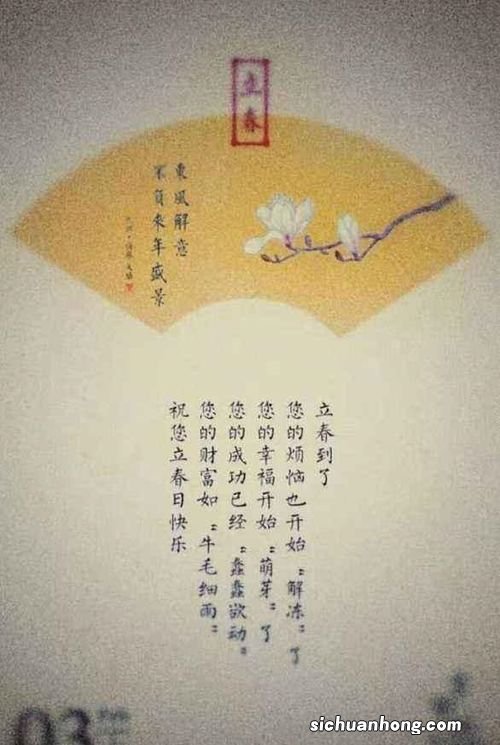 立春
東風解意
不負来年盛景
立春到了
您的烦恼也开始“解冻”了
您的幸福开始“萌芽”了
您的成功已经“蠢蠢欲动”
您的财富如“牛毛细雨”
祝您立春日快乐
03
sichuanhong.com